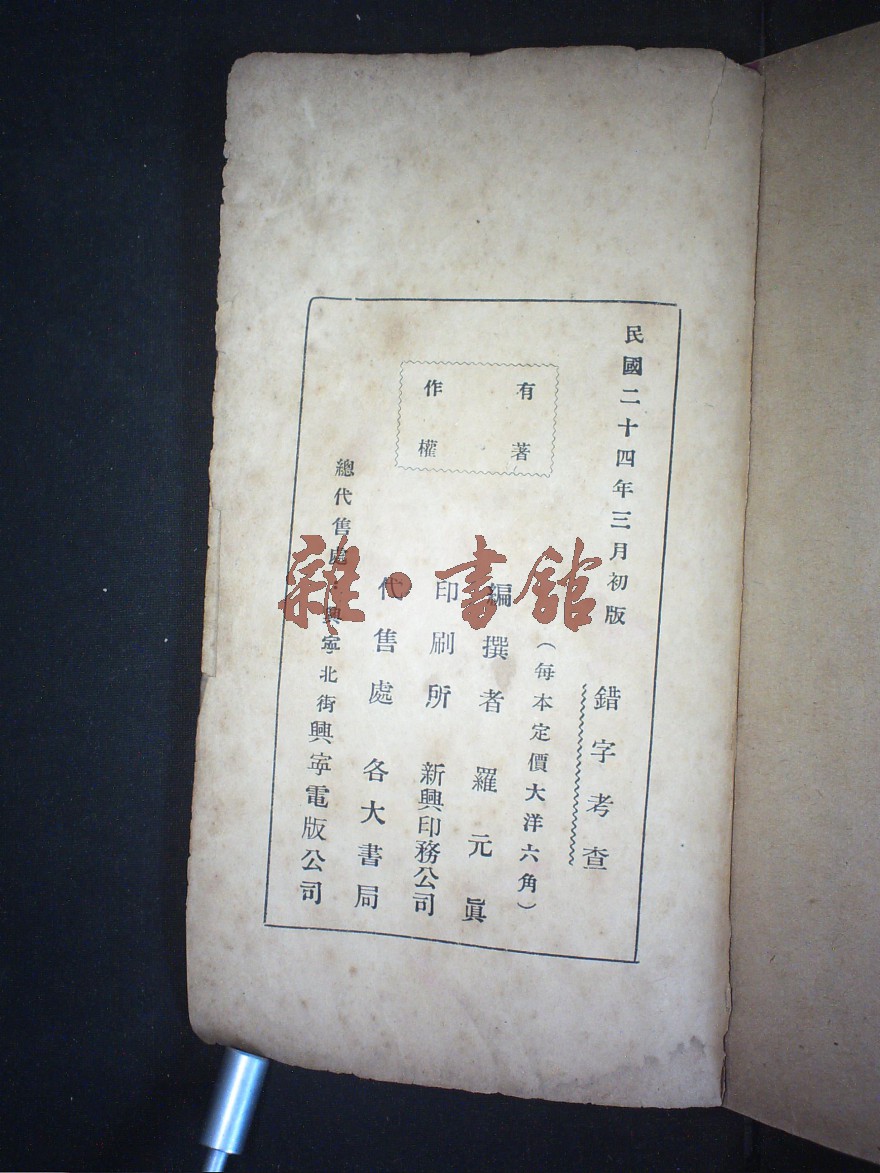 民國二十四年三月初版
錯字考查
(每本定價大洋六角)
有著
作權
編撰者 羅元眞
印刷所 新興印務公司
代售處 各大書局
總代售處 興寧北街興寧電版公司
雜·書館